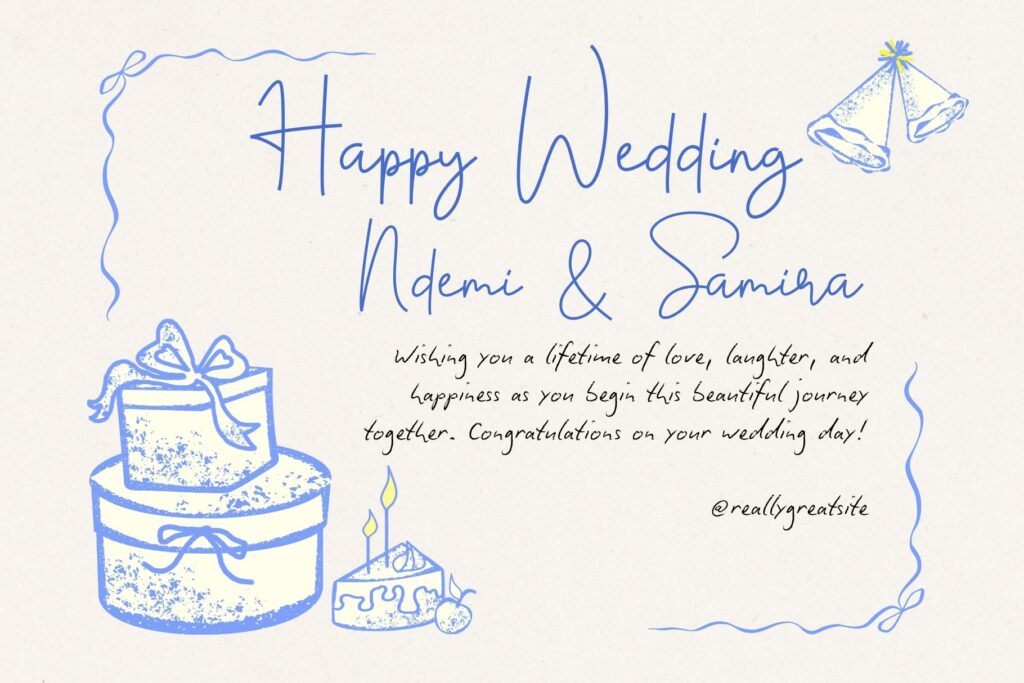 Happy Wedding
Ndemi & Samira
Wishing you a lifetime of love, laughter, and
happiness as you begin this beautiful journey
together. Congratulations on your wedding day!
@reallygreatsite